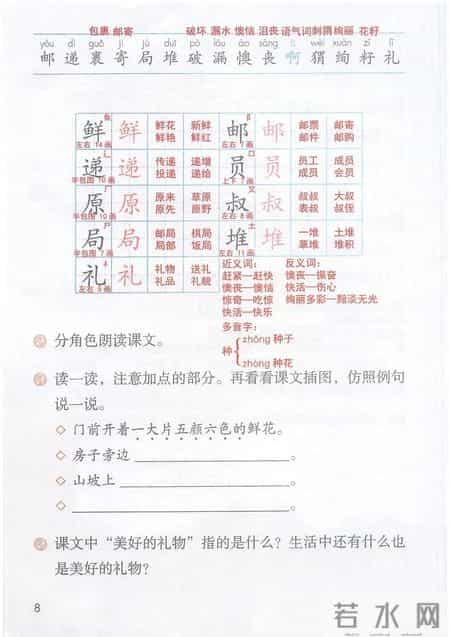 包裹 邮寄 破坏 漏水 懊恼 沮丧 语气词 刺猬 绚丽 花籽
yóu dì guǒ jì jú duī pò lòu ào sàng wèi xuàn zǐ lǐ
邮 递 裹 寄 局 堆 破 漏 懊 丧 啊 猬 绚 籽 礼
鲜 鲜 鲜花 新鲜 邮 邮 邮票 邮寄
左右 14画 鲜艳 鲜红 左右 7画 邮件 邮购
递 递 传递 递增 员 员 员工 成员
半包围 10画 投递 递给 上下 7画 成员 会员
原 原 原来 草原 叔 叔 叔叔 大叔
半包围 10画 原先 原野 左右 8画 表叔 叔侄
局 局 邮局 棋局 堆 堆 一堆 土堆
半包围 7画 局部 饭局 左右 11画 草堆 堆积
礼 礼 礼物 送礼
左右 5画 礼品 礼貌
近义词： 反义词：
赶紧—赶快 懊丧—振奋
懊丧—懊恼 快活—伤心
惊奇—吃惊 绚丽多彩—黯淡无光
快活—快乐
多音字：
种 zhǒng 种子
zhòng 种花
分角色朗读课文。
读一读，注意加点的部分。再看看课文插图，仿照例句
说一说。
◇ 门前开着一大片五颜六色的鲜花。
◇ 房子旁边 。
◇ 山坡上 。
◇ 。
课文中“美好的礼物”指的是什么？生活中还有什么也
是美好的礼物？
8
若水网